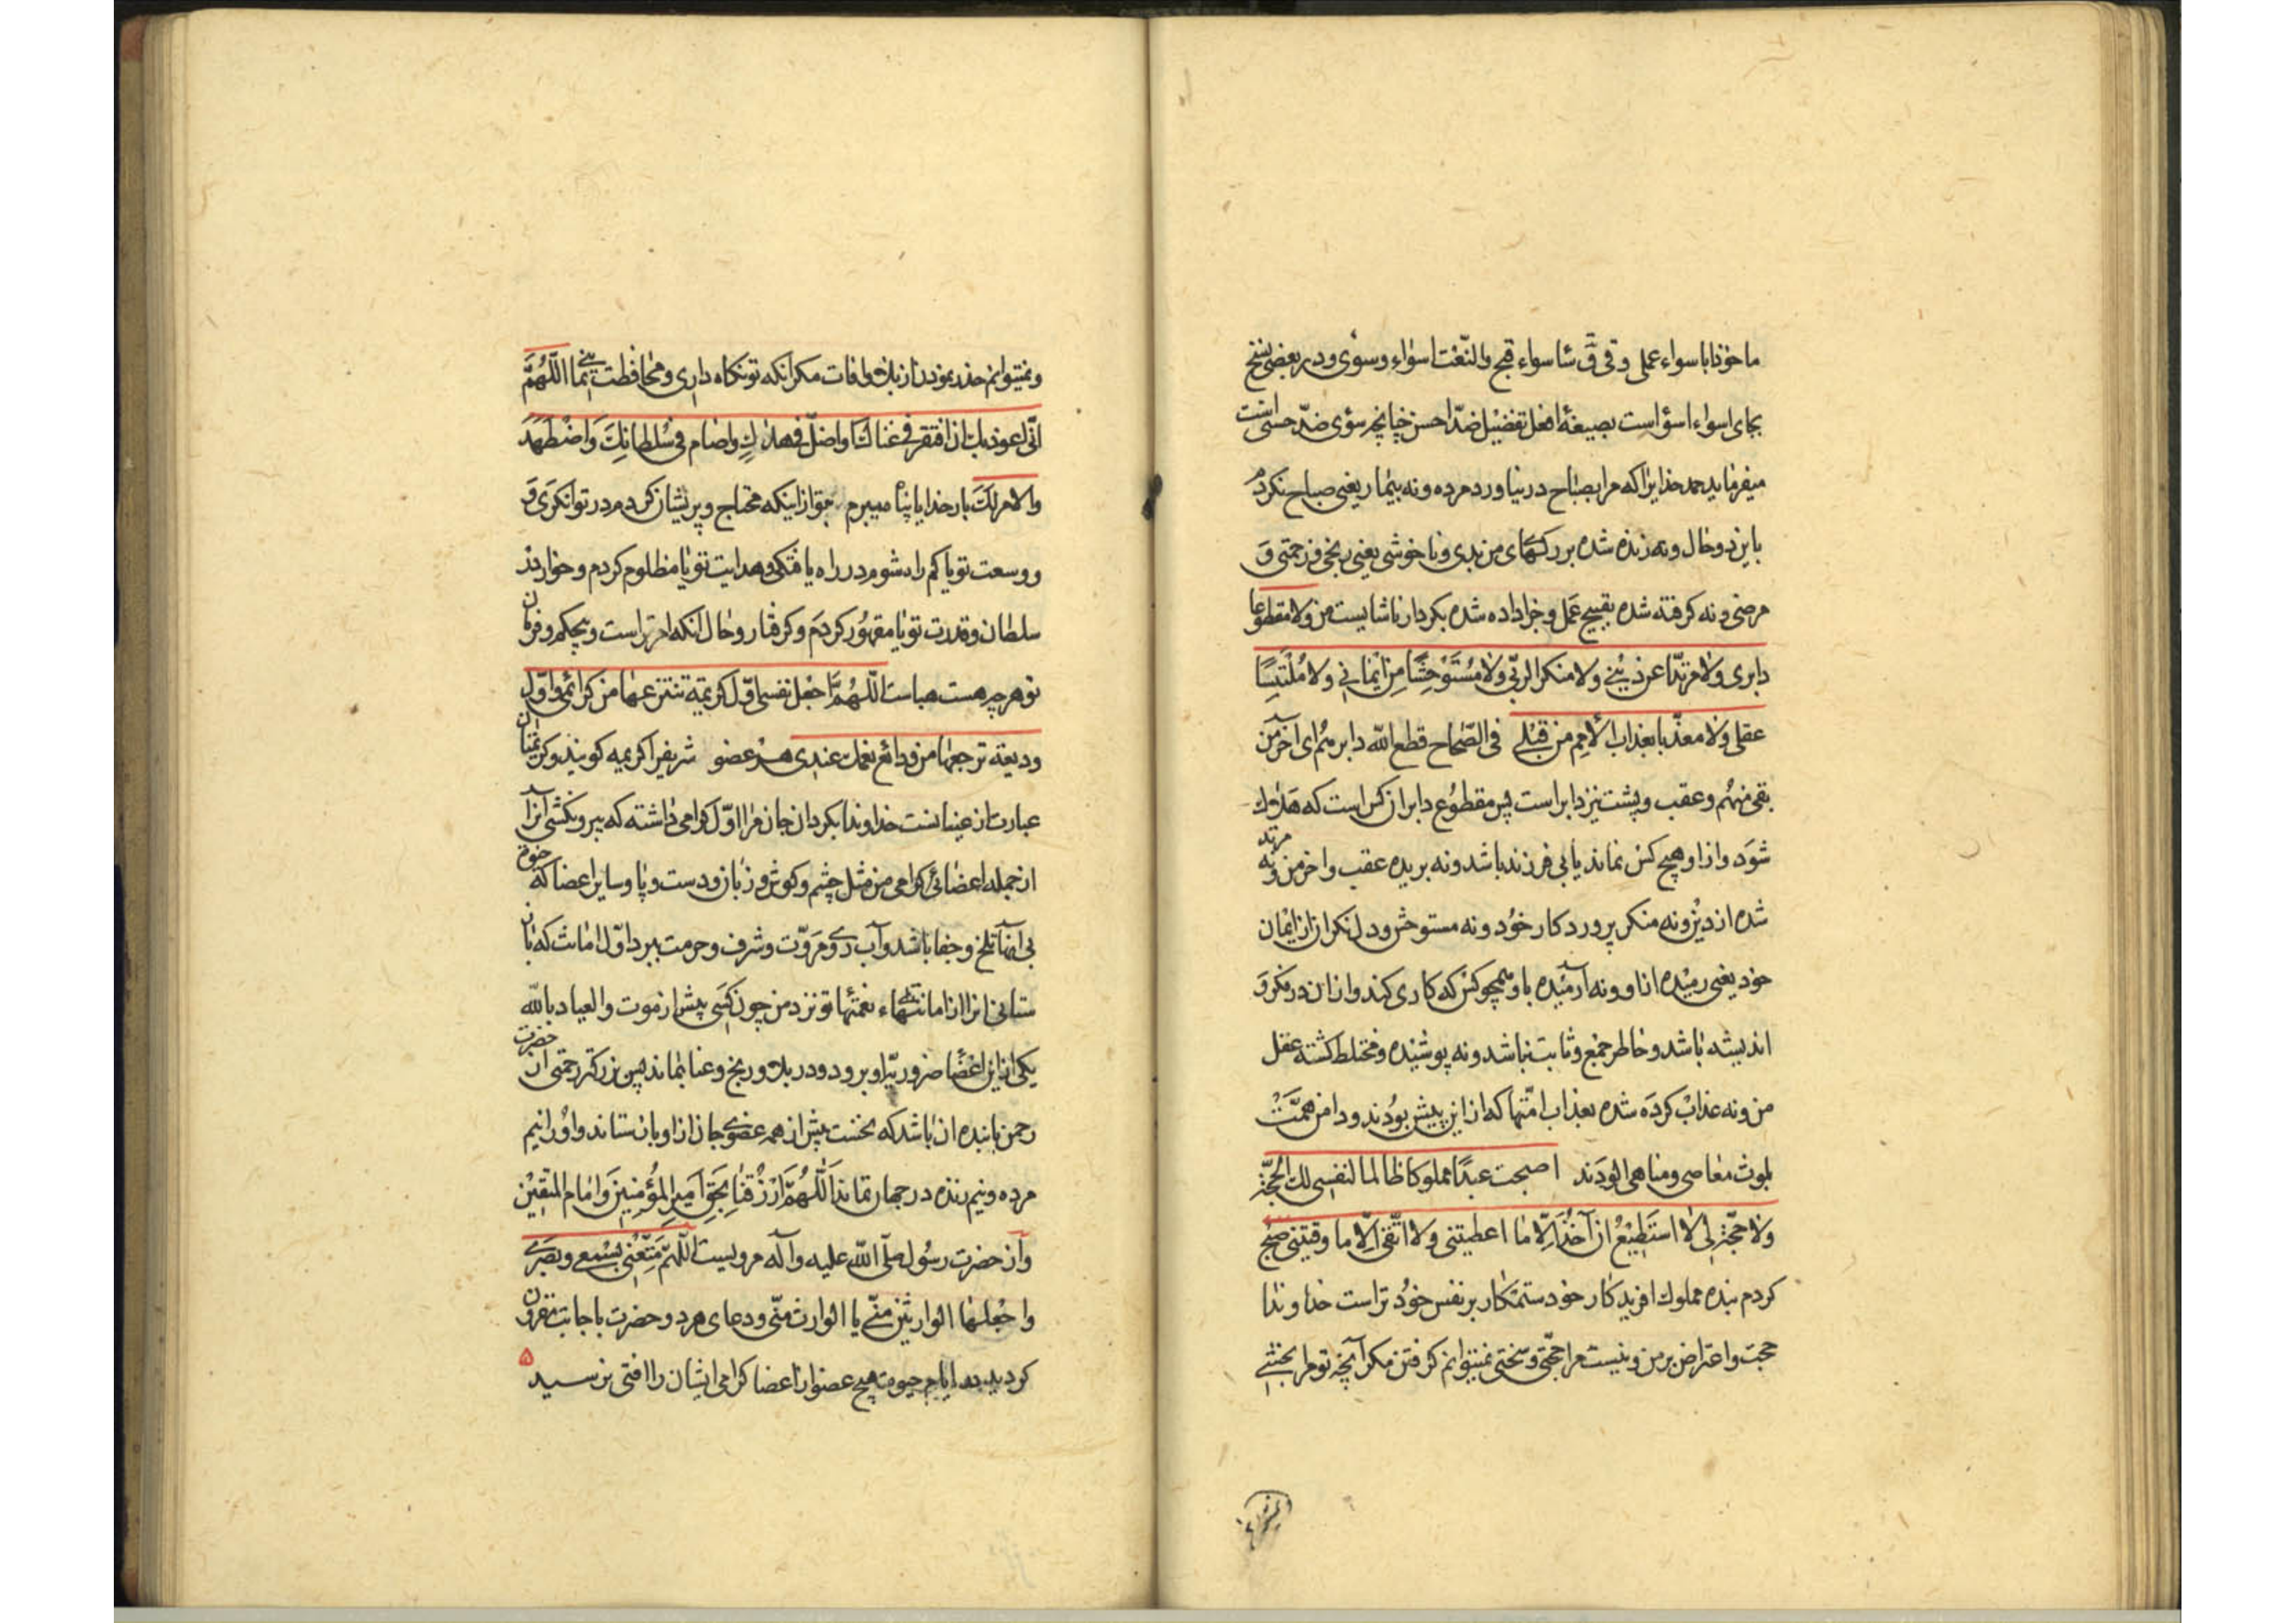 ماخوذا باسواء عملی وقی ق سا سواء قبح والنّعت اسواء وسوٰی ودر بعضی نسخ
بجای اسواء اسؤاست بصیغهٔ افعل تفضیل ضدّ احسن چنانچه سؤی ضدّ حسنی است
میفرماید حمد خدایرا که مرا بصباح در نیاورد مرده ونه بیمار یعنی صباح نکردم
باین دو حال ونه زده شده بر رکهای من بدی ونا خوشی یعنی رنجی وزحمتی و
مرضی ونه کرفته شده بقبیح عمل وجزا داده شده بکردار ناشایست من ولا مقطوعا
دابری ولا مرتدّا عن دینی ولا منکرا لربّی ولا مُسْتَوْحِشًا مِن ایمانی ولا مُلْتَبِسًا
عقلی ولا معذّبا بعذاب الأمم من قبلی فی الصّحاح قطع الله دابرهم ای آخر من
بقی منهم وعقب وپشت نیز دابر است پس مقطوع دابر ان کس است که هلاک
شود واز او هیچ کس نماند یا بی فرزند باشد ونه بریده عقب واخر من ونه مرتد
شده از دین ونه منکر پروردکار خود ونه مستوحش ودل نکران از ایمان
خود یعنی رمیده از او ونه آرمیده باو همچو کسی که کاری کند واز ان در فکر و
اندیشه باشد وخاطر جمع وثابت نباشد ونه پوشیده ومختلط کشته عقل
من ونه عذاب کرده شده بعذاب امّتها که از این پیش بودند ودامن همّت
بلوث معاصی ومناهی الودند اصبحت عبدًا مملوکا ظالما لنفسی لک الحجّة
ولا حجّة لی لا استطیع ان آخذ الّا ما اعطیتنی ولا اتّقی الّا ما وقیتنی صبح
کردم بنده مملوک افریدکار خود ستمکار بر نفس خود تراست خداوندا
حجت واعتراض بر من ونیست مرا حجّتی وسختی نمیتوانم کرفتن مکر آنچه تو مرا بخشی
ونمیتوانم حذر نمودن از بلا وافات مکر انکه تو نکاه داری ومحافظت نمایی اللّهمّ
انّی اعوذ بک ان افتقر فی غناک او اضلّ فی هداک او اضام فی سلطانک واضطهد
والامر لک بار خدایا پناه میبرم بتو از اینکه محتاج وپریشان کردم در توانکری و
ووسعت تو یا کم راه شوم در راه یافتکی وهدایت تو یا مظلوم کردم وخوار در
سلطان وقدرت تو یا مقهور کردم وکرفتار وحال انکه امر تراست وبحکم وفرمان
تو هرچه هست هباست اللّهمّ اجعل نفسی اوّل کریمة تنتزعها من کرائمی واوّل
ودیعة ترجعها من ودائع نعمک عندی هر عضو شریفرا کریمه کویند وکریمتان
عبارت از عینانست خداوندا بکردان جان مرا اوّل کرامی داشته که بیرون کشی آنرا
از جمله اعضائی کرامی من مثل چشم وکوش وزبان ودست وپا وسایر اعضا که حیوة
بی آنها تلخ وجفا باشد وآب روی ومروّت وشرف وحرمت ببرد اوّل امانت که بان
ستانی انرا از امانتهاء نعمتها تو نزد من چون کسی پیش از موت والعیاد بالله
یکی از این اعضا ضروریّه او برود ودر بلا ورنج وعنا بماند پس بزرکتر رحمتی از حضرت
رحمن با بنده ان باشد که نخست پیش از همه عضوی جان از او باز ستاند واورا نیم
مرده ونیم زنده در جهان نماند اللّهمّ ارْزُقْنا بحَقِّ امیر المؤمنین وامام المتّقین
وآن حضرت رسول صلّی الله علیه وآله مرویست اللّهمّ متّعنی بسمعی وبصری
واجعلها الوارثین منّی یا الوارث منّی ودعای هر دو حضرت باجابت مقرون
کردید در ایام حیوة هیچ عضو از اعضا کرامی ایشان را افتی نرسید